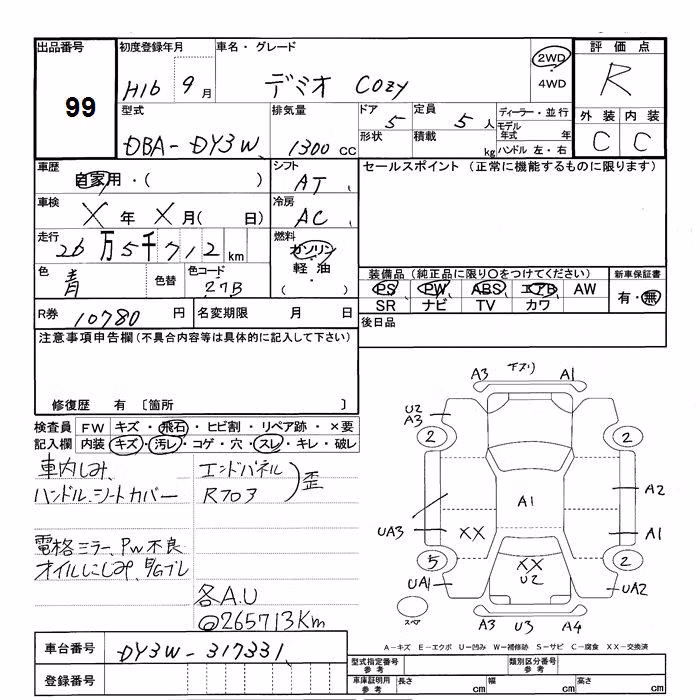 出品番号 初度登録年月 車名・グレード 評価点
99 H16 9月 デミオ COZY 2WD・4WD R
型式 排気量 ドア 5 定員 5人 ディーラー・並行 外装 内装
DBA-DY3W 1300cc 形状 積載 kg モデル年式 年 ハンドル 左・右 C C
車歴 自家用・( ) シフト AT セールスポイント (正常に機能するものに限ります)
車検 X年 X月( 日) 冷房 AC
走行 26万5千712km 燃料 ガソリン 軽油 ( ・ )
色 青 色替 色コード 27B 装備品 (純正品に限り○をつけてください) 新車保証書
PS PW ABS エアB AW 有・無
SR ナビ TV カワ
R券 10780円 名変期限 月 日 後日品
注意事項申告欄(不具合内容等は具体的に記入して下さい)
修復歴 有 〔箇所 〕
検査員 FW キズ・飛石・ヒビ割・リペア跡・×要
記入欄 内装 キズ・汚レ・コゲ・穴・スレ・キレ・破レ
車内しみ、 エンドパネル
ハンドル、シートカバー Rフロア 歪
電格ミラー、PW不良
オイルにじみ、
各A.U
@265713Km
A3 A1
U2
A3
2 2
A2
A1
UA3 XX A1
5 XX 2
UA1 U2 UA2
スペア A3 U3 A4
A-キズ E-エクボ U-凹み W-補修跡 S-サビ C-腐食 XX-交換済
車台番号 DY3W-317331
登録番号
型式指定番号 参考 類別区分番号 参考
車庫証明用 参考 長さ cm 幅 cm 高さ cm